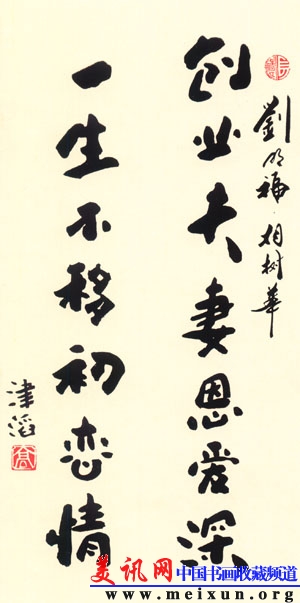 劉明福 相树華
创业夫妻恩爱深
一生不移初恋情
津滔
美讯网 中国书画收藏频道
www.meixun.org